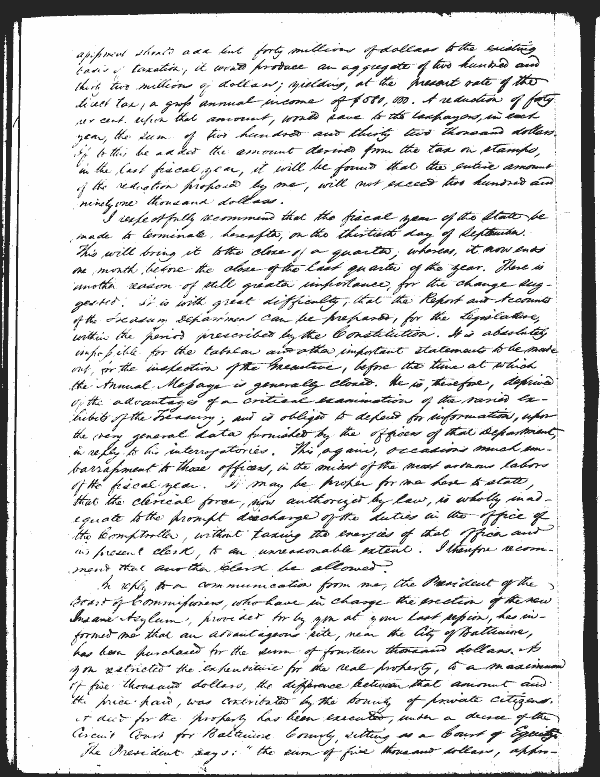 should add but forty millions of dollars to the existing
basis of taxation, it would produce an aggregate of two hundred and
thirty two millions of dollars; yielding, at the present rate of the
direct tax, a gross annual income of. A reduction of forty
per cent. upon that amount, would save to the taxpayers, in each
year, the sum of two hundred and thirty two thousand dollars.
If to this be added the amount derived from the tax on stamps,
in the last fiscal year, it will be found that the entire amount
of the reduction proposed by me, will not exceed two hundred and
ninety one thousand dollars.
I respectfully recommend that the fiscal year of the State be
made to terminate, hereafter, on the thirtieth day of September.
This will bring it to the close of a quarter, whereas, it now ends
one month before the close of the last quarter of the year. There is
another reason of still greater importance, for the change sug-
gested; it is with great difficulty, that the Report and Accounts
of the Treasury Department can be prepared, for the Legislature,
within the period prescribed by the Constitution. It is absolutely
impossible for the tabular and other important statements to be made
out, for the inspection of the Executive, before the time at which
the Annual Message is generally closed. He is, therefore, deprived
of the advantages of a critical examination of the varied Ex-
hibits of the Treasury; and is obliged to depend for information, upon
the very general data furnished by the officers of that Department,
in reply to his interrogatories. This, again, occasions much em-
barrassment to those officers, in the midst of the most arduous labors
of the fiscal year. It may be proper for me here to state,
that the clerical force, now authorized by law, is wholly inad-
equate to the prompt discharge of the duties in the office of
the Comptroller, without taxing the energies of that officer and
his present clerk, to an unreasonable extent. I therefore recom-
mend that another Clerk be allowed.
In reply to a communication from me, the President of the
Board of Commissioners, who have in charge the erection of the new
Insane Asylum, provided for by you at your last session, has in-
formed me that an advantageous site, near the City of Baltimore,
has been purchased for the sum of fourteen thousand dollars. As
you restricted the expenditure for the real property, to a maximum
of five thousand dollars, the difference between that amount and
the price paid, was contributed by the bounty of private citizens.
A deed for the property has been executed, under a decree of the
Circuit Court for Baltimore County, sitting as a Court of Equity.
The President says: "the sum of five thousand dollars, appro-